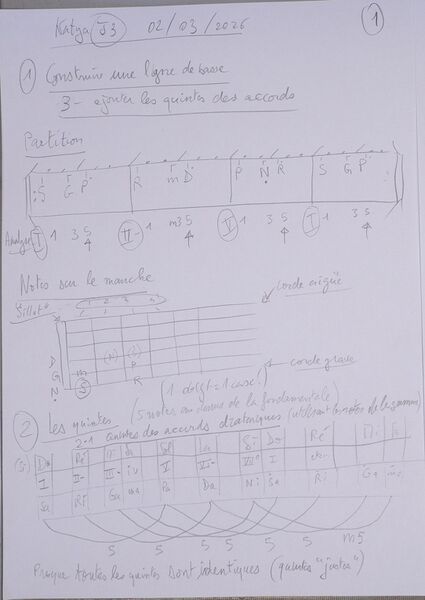 Katya J3 02/03/2026 1
1 Construire une ligne de basse
3 - ajouter les quintes des accords
Partition
S G P R m D P N R S G P
Analyse I 1 3 5 II- 1 m3 5 V 1 3 5 I 1 3 5
Notes sur le manche
"Sillet" 1 2 3 4
corde aigüe
D
G (N) (S)
N m P
S R
corde grave
(1 doigt = 1 case!)
2 Les quintes (5 notes au dessus de la fondamentale)
2-1 autres des accords diatoniques (utilisant les notes de la gamme)
Do Ré Sol La Si Do Ré
I II- III- IV V VI- VII I etc
Sa Ri Ga ma Pa Da Ni Sa Ri Ga ma
5 5 5 5 5 5 m5
Presque toutes les quintes sont identiques (quintes "justes")